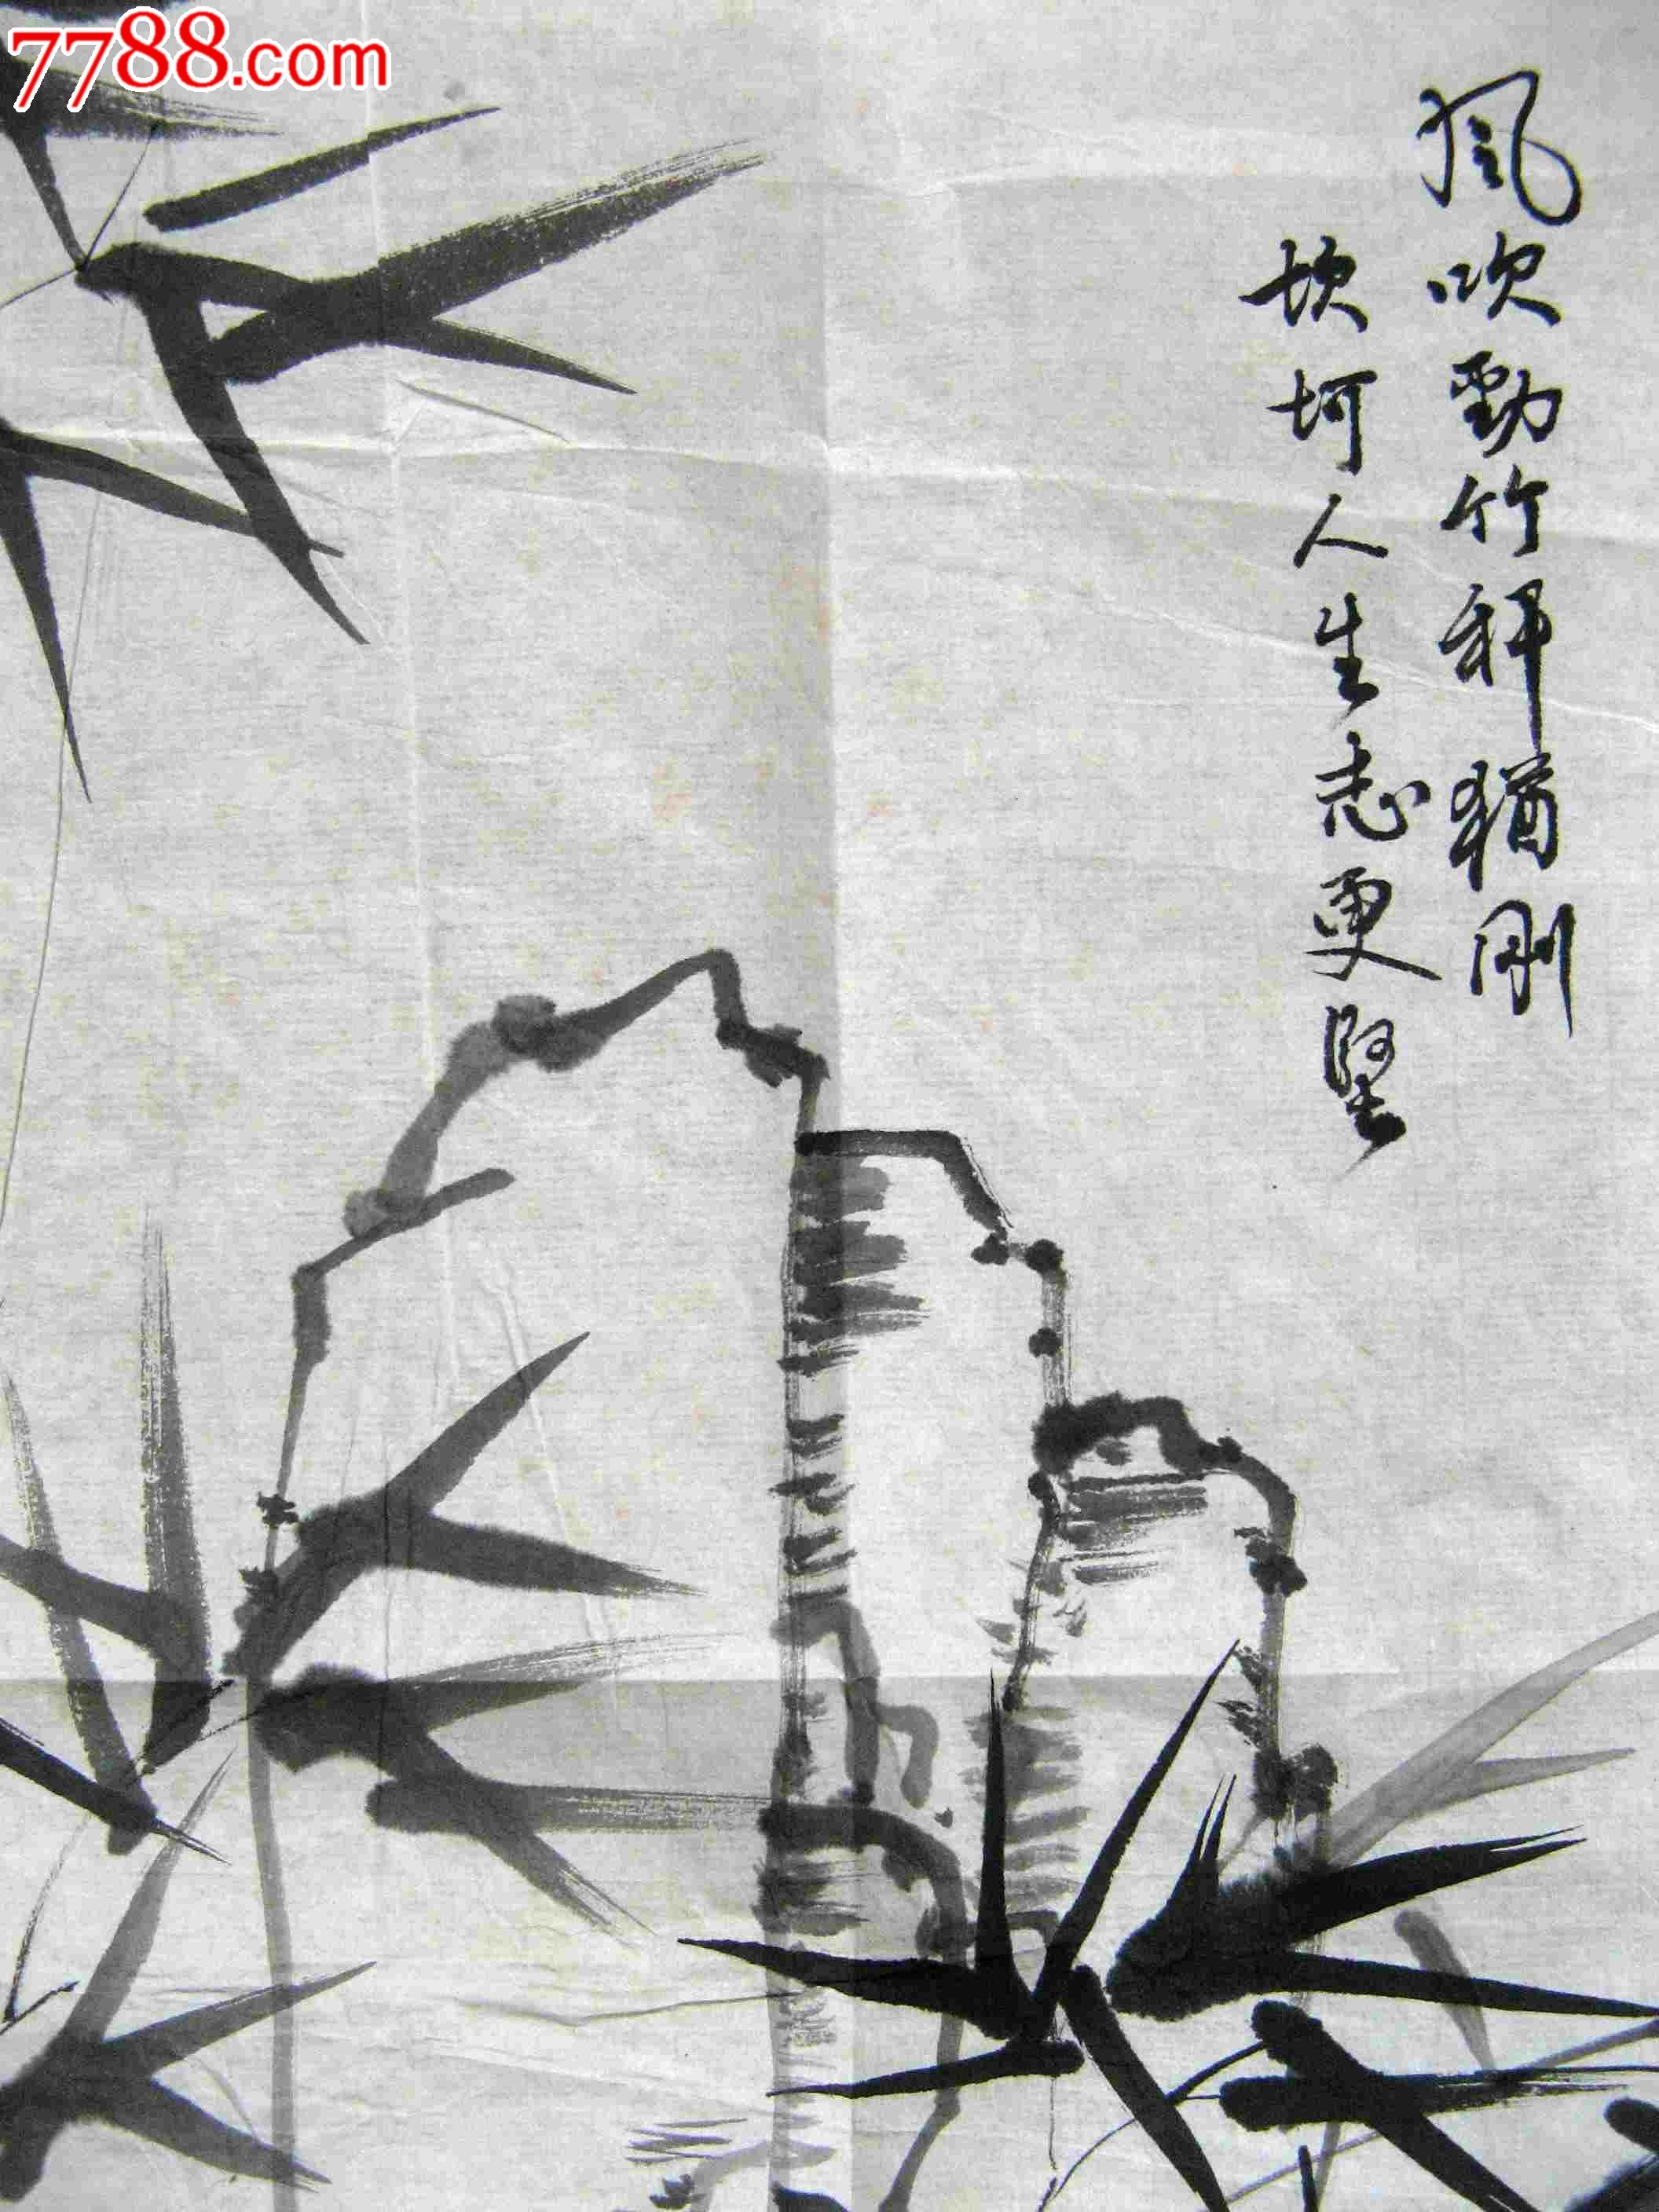 7788.com
風吹勁竹稈猶剛
坎坷人生志更堅